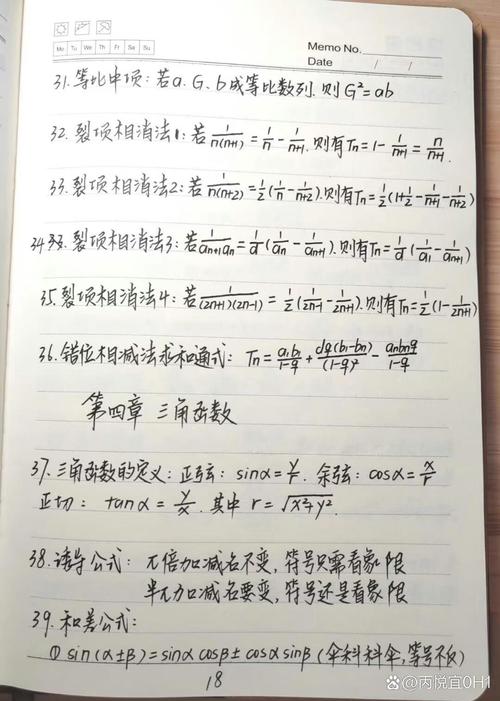 Mo Tu We Th Fr Sa Su
Memo No.
Date / /
31.等比中项:若a.G.b成等比数列.则G²=ab
32.裂项相消法1:若1/n(n+1)=1/n-1/n+1.则有Tn=1-1/n+1=n/n+1.
33.裂项相消法2:若1/n(n+2)=1/2(1/n-1/n+2).则有Tn=1/2(1+1/2-1/n+1-1/n+2)
34.裂项相消法3:若1/an+1an=1/d(1/an-1/an+1).则有Tn=1/d(1/a1-1/an+1)
35.裂项相消法4:若1/(2n+1)(2n-1)=1/2(1/2n-1-1/2n+1).则有Tn=1/2(1-1/2n+1)
36.错位相减法求和通式:Tn=a1b1/1-q+dq(b1-bn)/(1-q)²-anbnq/1-q
第四章 三角函数
37.三角函数的定义:正弦:sinα=y/r.余弦:cosα=x/r
正切:tanα=y/x.其中r=√x²+y².
38.诱导公式:π倍加减名不变,符号只需看象限
半π加减名要变,符号还是看象限
39.和差公式:
①sin(α±β)=sinαcosβ±cosαsinβ(伞科科伞,等号不反)
18
@丙悦宜0H1